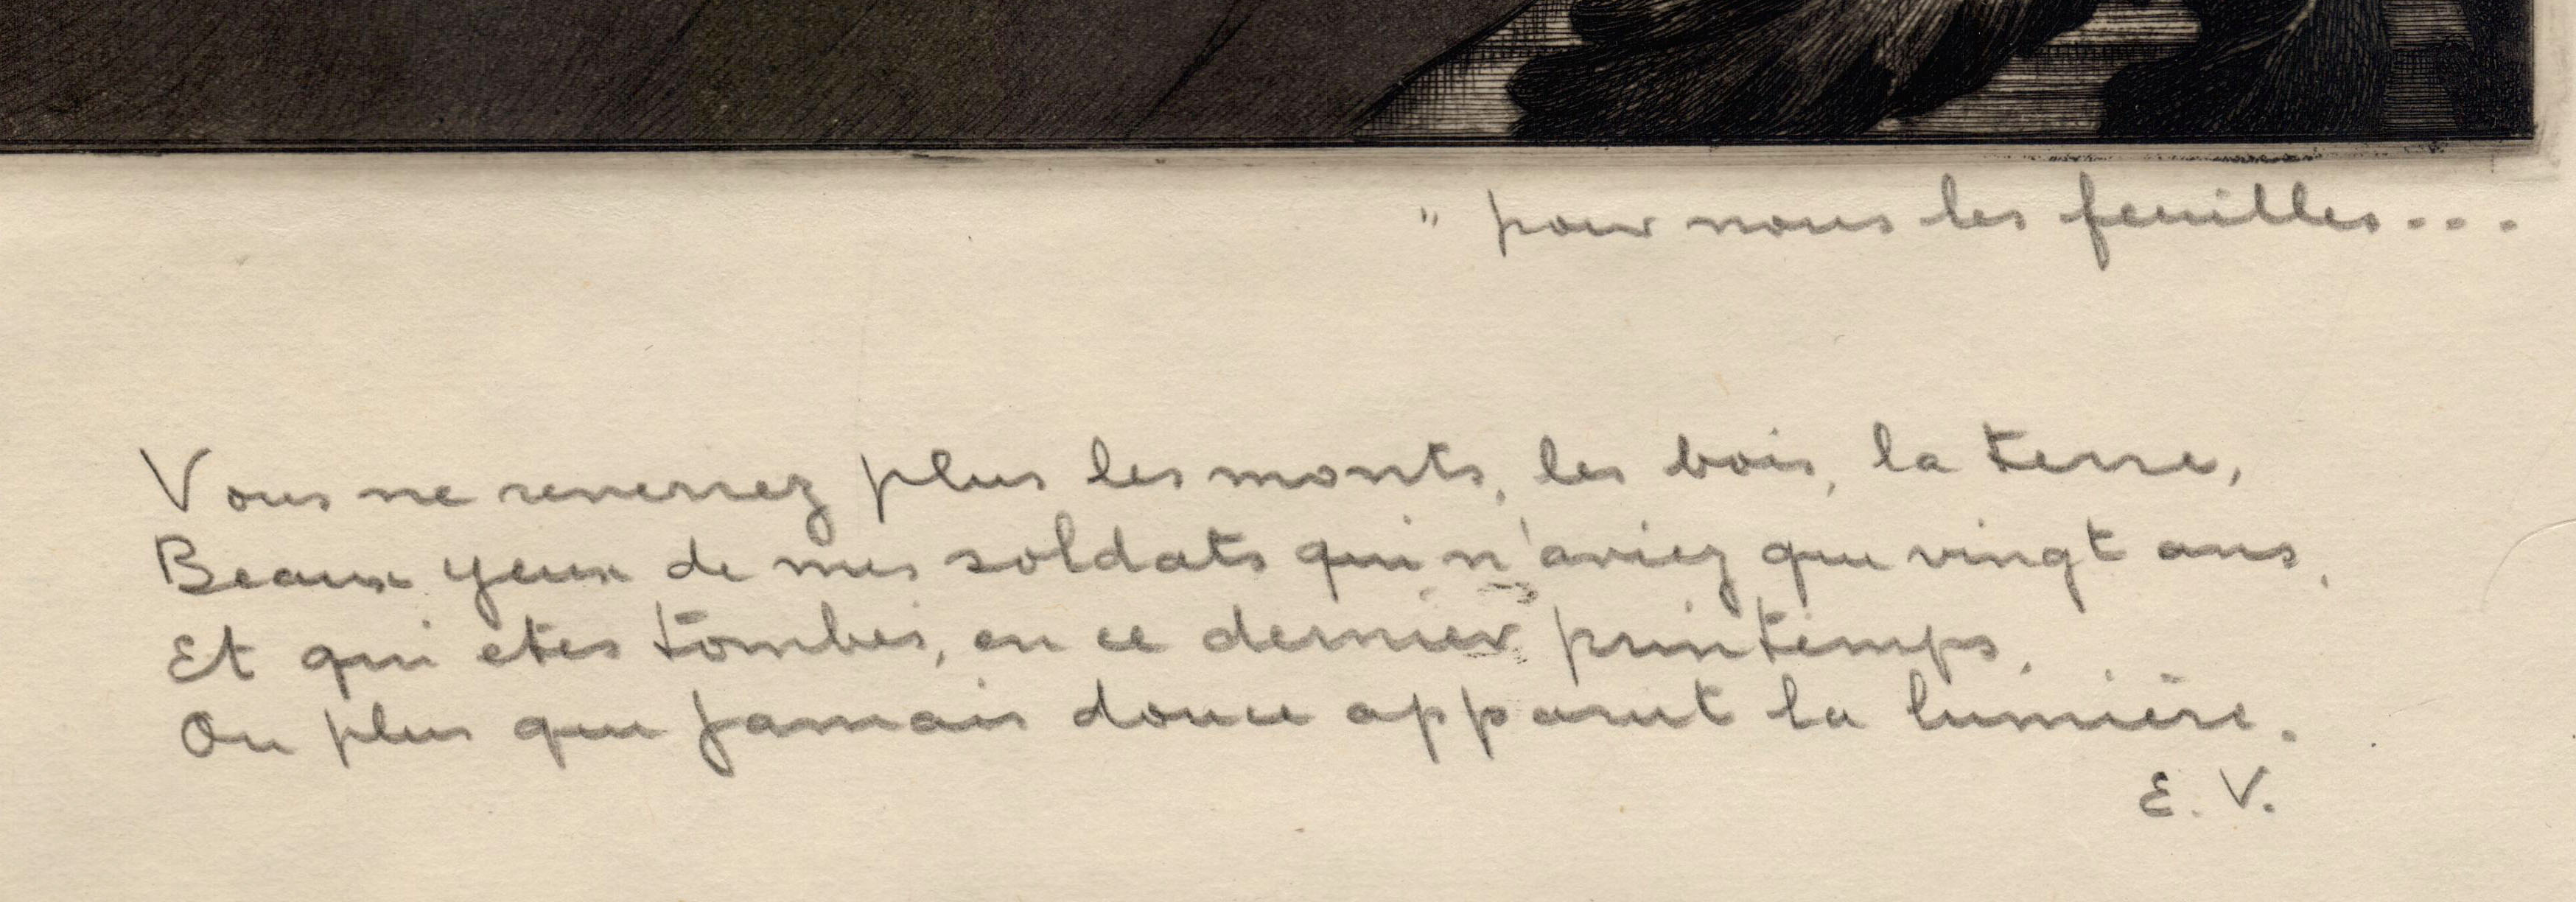 " pour nous les feuilles...
Vous ne reverrez plus les monts, les bois, la terre,
Beaux yeux de mes soldats qui n'aviez que vingt ans,
Et qui etes tombés, en ce dernier printemps,
Ou plus que jamais douce apparut la lumière.
E. V.